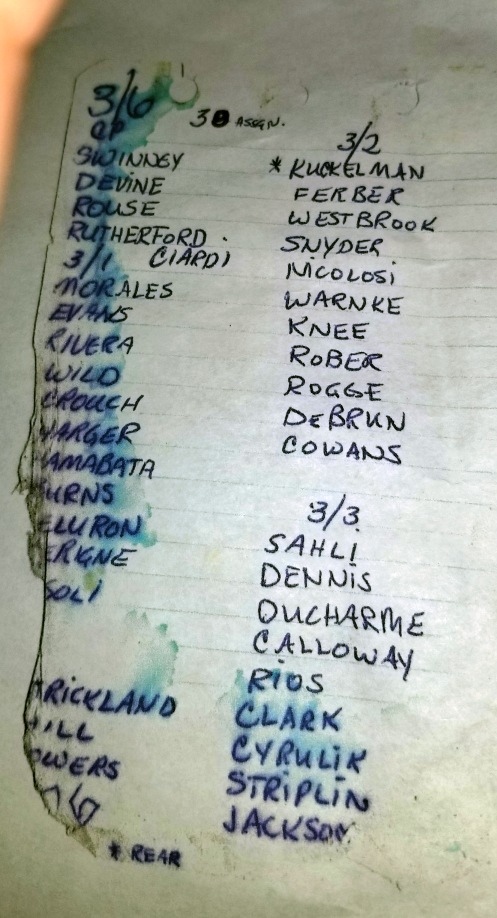 3/6
CP
SWINNEY
DEVINE
ROUSE
RUTHERFORD
3/1 CIARDI
MORALES
EVANS
RIVERA
WILD
CROUCH
YARGER
AMABATA
URNS
ELURON
ERGNE
SOLI
RICKLAND
ILL
OWERS
* REAR
3 ASSGN.
3/2
* KUCKELMAN
FERBER
WESTBROOK
SNYDER
NICOLOSI
WARNKE
KNEE
ROBER
ROGGE
DEBRUN
COWANS
3/3
SAHLI
DENNIS
DUCHARME
CALLOWAY
RIOS
CLARK
CYRULIK
STRIPLIN
JACKSON